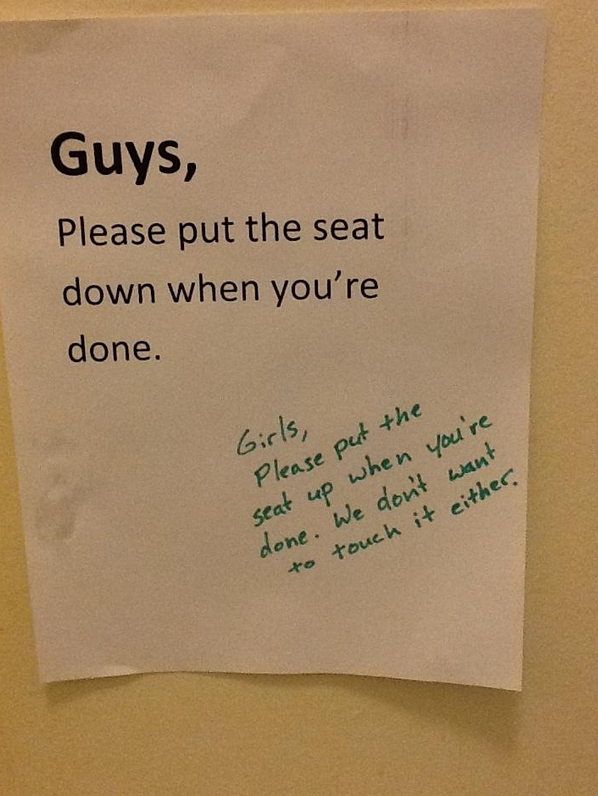 Guys,
Please put the seat
down when you're
done.
Girls,
Please put the
seat up when you're
done. We don't want
to touch it either.